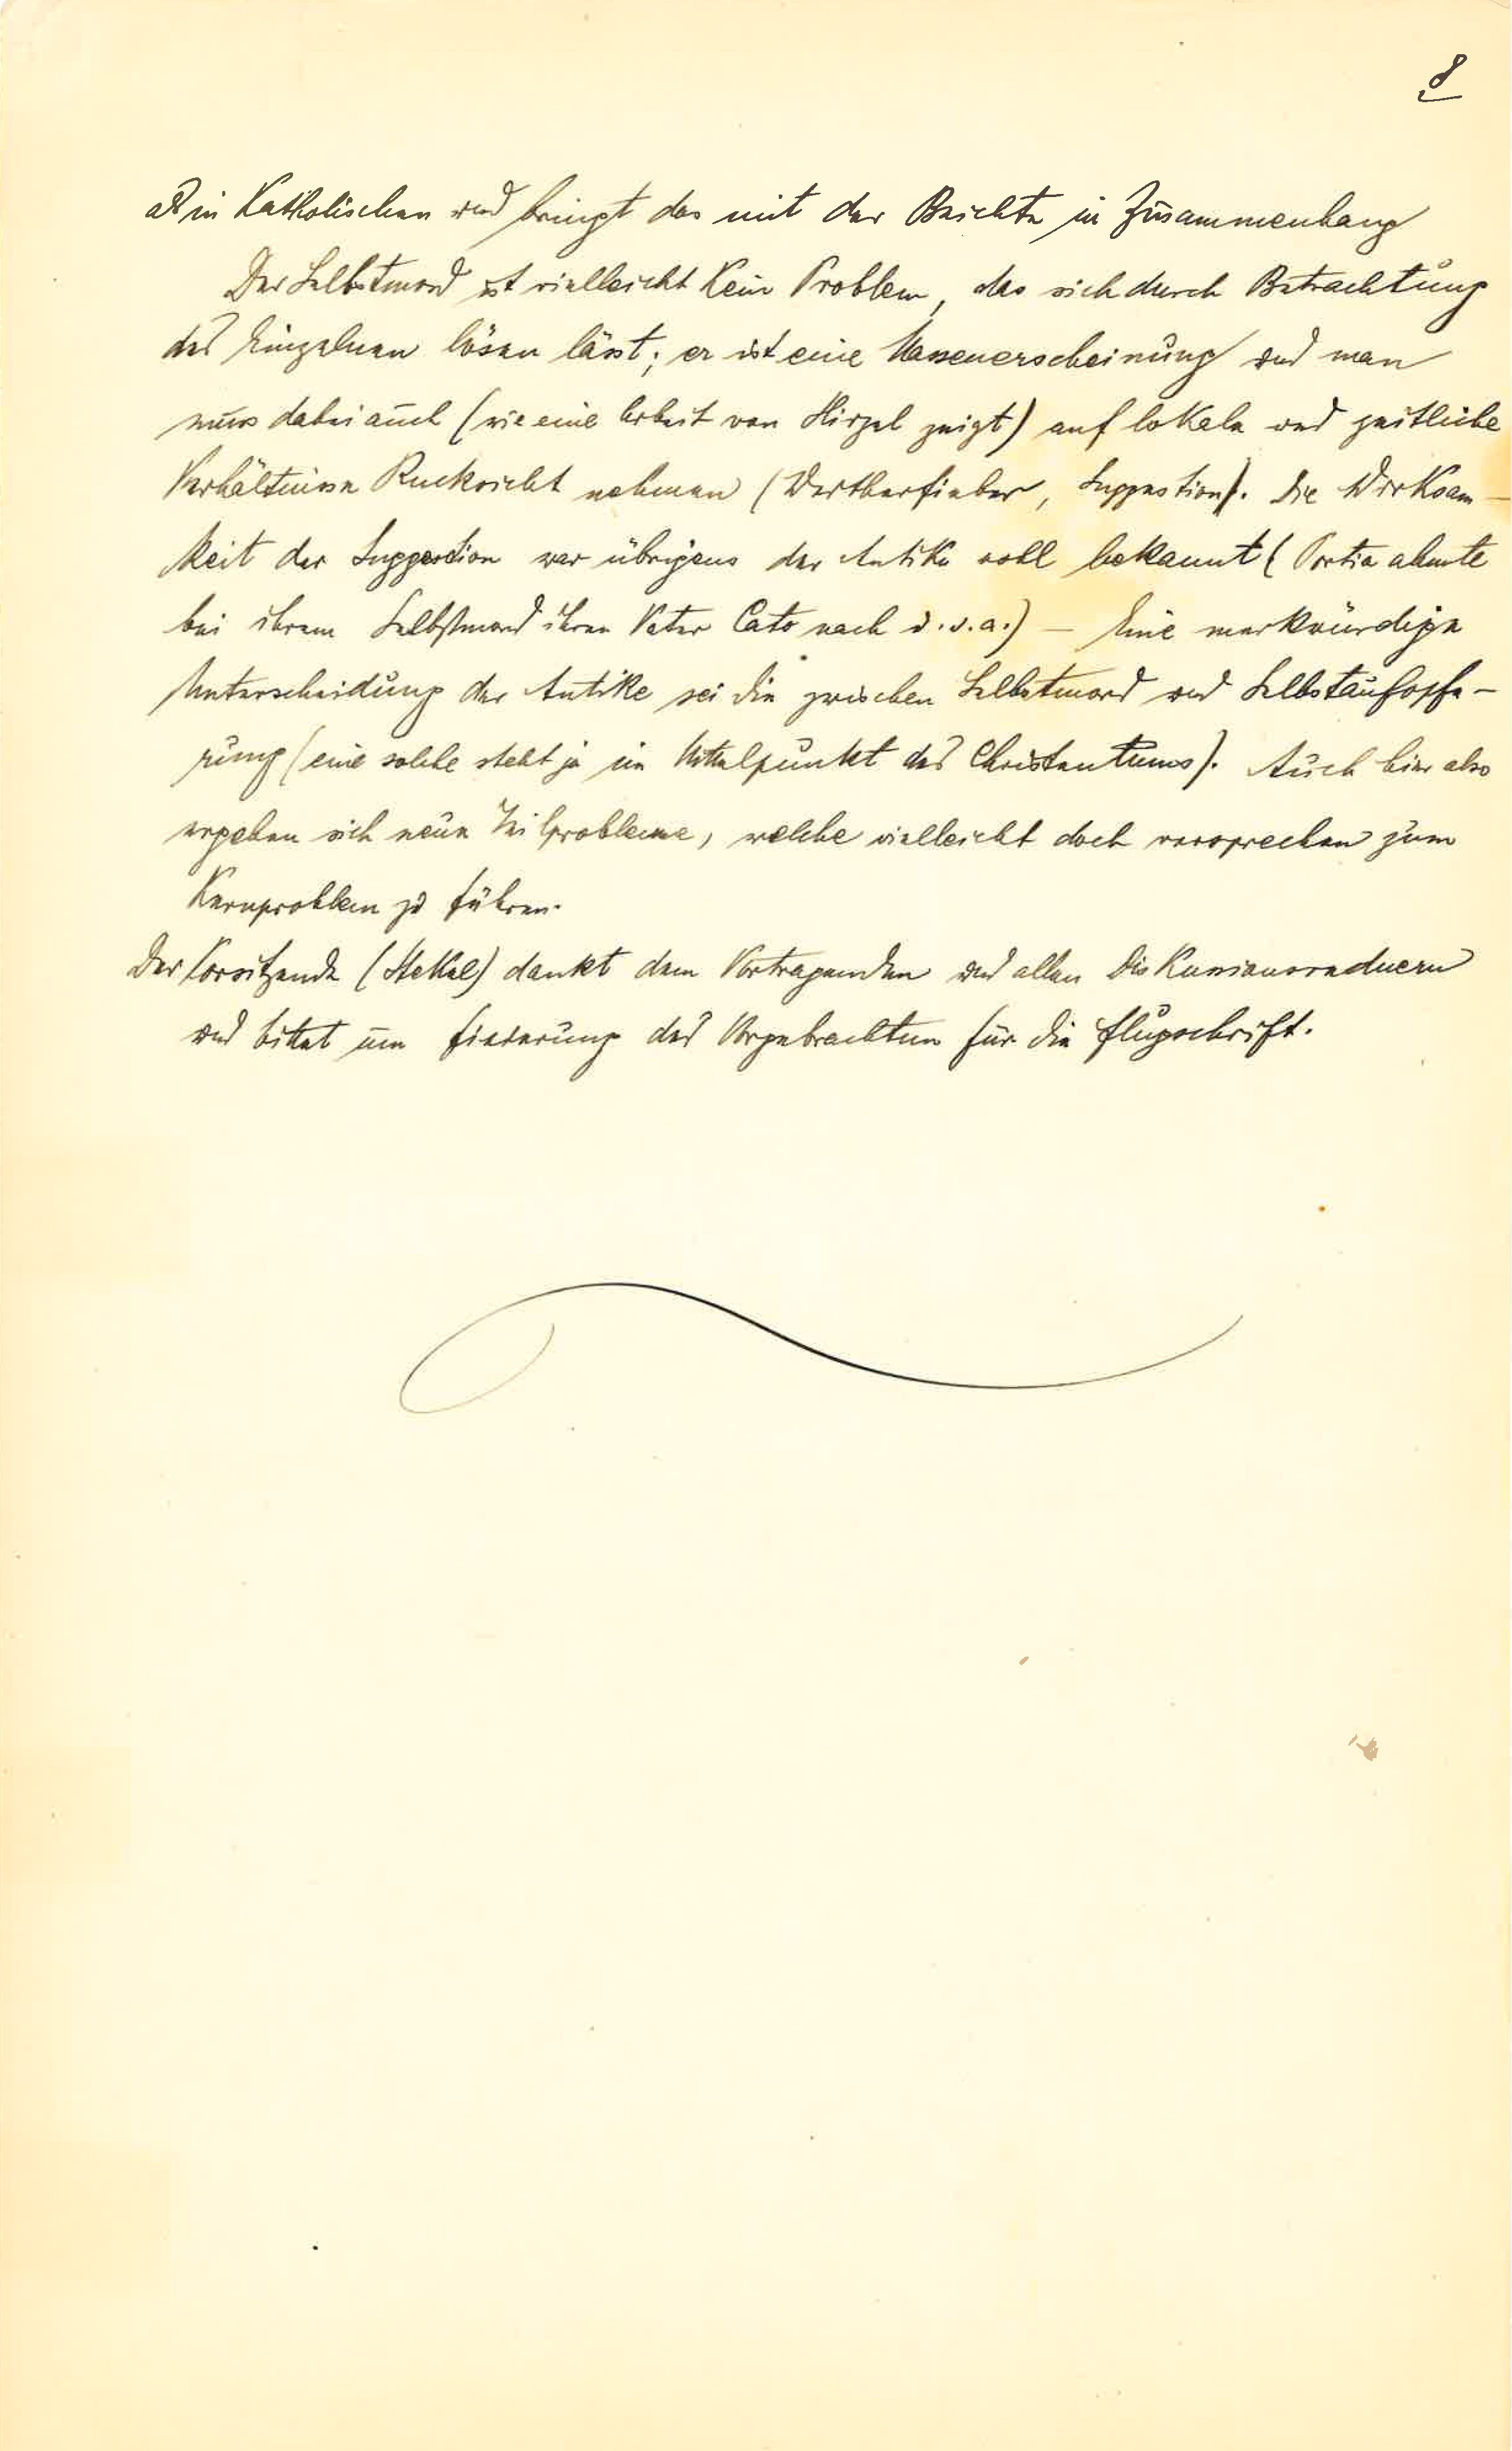 8
als in Katholischen und bringt das mit der Beichte in Zusammenhang
Der Selbstmord ist vielleicht kein Problem, das sich durch Betrachtung
des Einzelnen lösen lässt; er ist eine Massenerscheinung und man
muss dabei auch (wie eine Arbeit von Hirzel zeigt) auf lokale und zeitliche
Verhältnisse Rucksicht nehmen (Wertherfieber, Suggestion). Die Wirksam-
keit der Suggestion war übrigens der Antike wohl bekannt (Portia ahmte
bei ihrem Selbstmord ihren Vater Cato nach u.v.a.) – Eine merkwürdige
Unterscheidung der Antike sei die zwischen Selbstmord und Selbstaufopfe-
rung (eine solche steht ja im Mittelpunkt des Christentums). Auch hier also
ergeben sich neue Teilprobleme, welche vielleicht doch versprechen zum
Kernproblem zu führen.
Der Vorsitzende (Stekel) dankt dem Vortragenden und allen Diskussionsrednern
und bittet um Fixierung des Vorgebrachten für die Flugschrift.